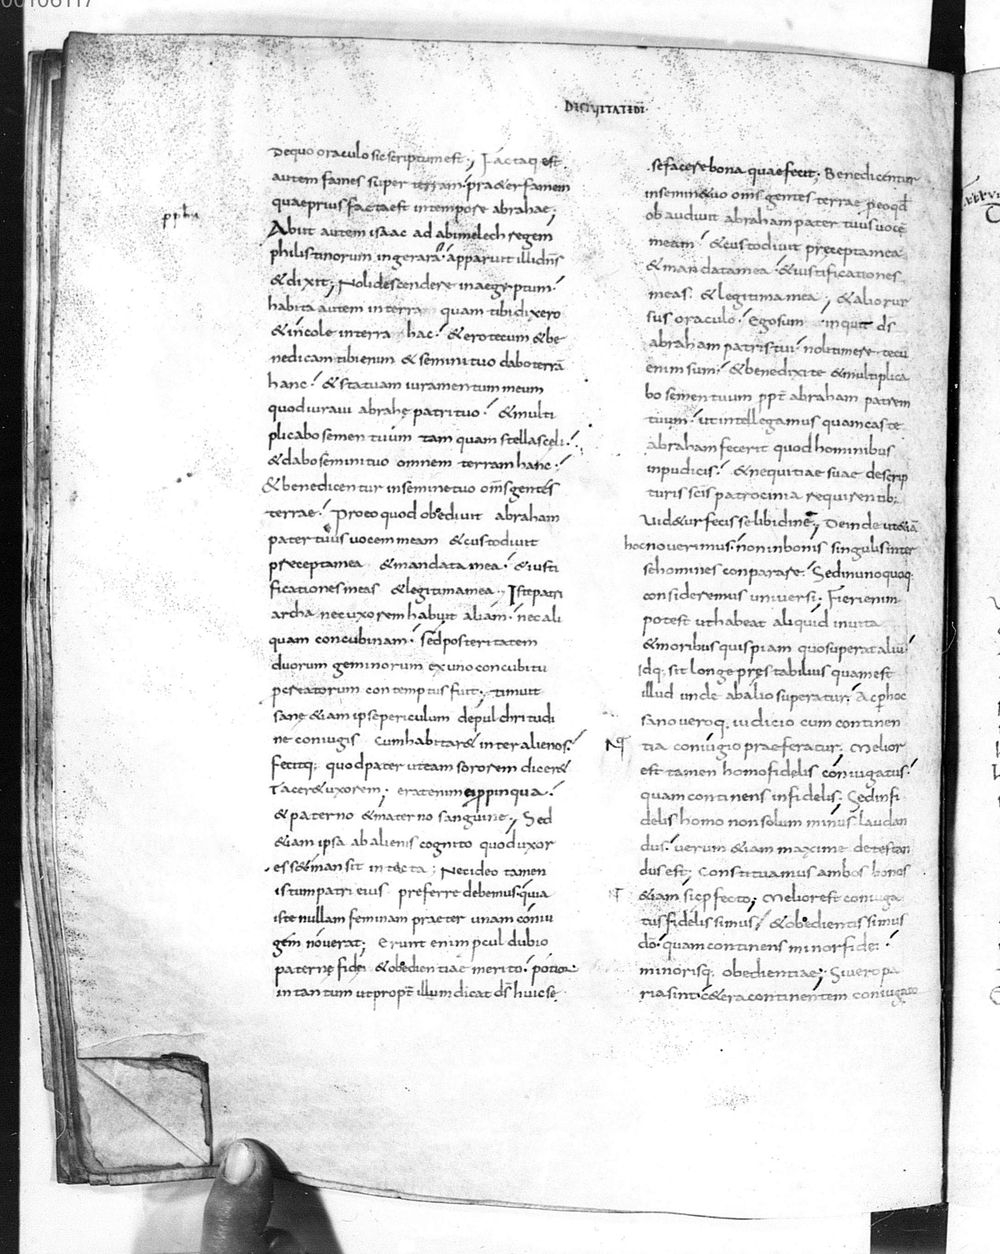 00106117
DE CIVITATE DĪ
De quo oraculo sic scriptum est; Facta quę est
autem fames super terram praeter famem
quae prius facta est in tempore abrahae;
pphā
Abiit autem isaac ad abimelech regem
philistinorum in gerara. apparuit illi dn̄s
& dixit; Noli descendere in aegyptum.
habita autem in terra quam tibi dixero
& incole in terra hac. & ero tecum & be
nedicam tibi enim & semini tuo dabo terrā
hanc. & statuam iuramentum meum
quod iuraui abrahę patri tuo. & multi
plicabo semen tuum tamquam stellas cęli.
& dabo semini tuo omnem terram hanc.
& benedicentur in semine tuo om̄s gentes
terrae. Pro eo quod obediuit abraham
pater tuus uocem meam & custodiuit
precepta mea & mandata mea. & iusti
ficationes meas & legitima mea; Iste patri
archa nec uxorem habuit aliam. nec ali
quam concubinam. sed posteritatem
duorum geminorum ex uno concubitu
procreatorum contemptus fuit; timuit
sanę &iam ipse periculum de pulchritudi
ne coniugis cum habitar& inter alienos.
fecitq; quod pater ut eam sororem dicer&
tacer& uxorem; erat enim ei propinqua.
& paterno & materno sanguine; Sed
&iam ipsa ab alienis cognito quod uxor
ess& mansit intacta; Nec ideo tamen
istum patri eius preferre debemus quia
iste nullam feminam praeter unam coniu
gem nouerat; Erant enim pcul dubio
paternę fidei & obedientiae merito potiora
in tantum ut propt̄ illum dicat ds̄ huic se
se facere bona quae fecit; Benedicentur
in semine tuo om̄s gentes terrae p eo qd̄
obaudiuit abraham pater tuus uocē
meam. & custodiuit precepta mea
& mandata mea & iustificationes
meas. & legitima mea; & alio rur
sus oraculo. Ego sum inquit ds̄
abraham patris tui. noli timere tecū
enim sum. & benedixi te & multiplica
bo semen tuum ppt̄ abraham patrem
tuum. ut intellegamus quam caste
abraham fecerit quod hominibus
inpudicis. & nequitiae suae descrip
turis scīs patrocinia requirentib;
uid&ur fecisse libidine; Deinde ut &iā
hoc nouerimus. non in bonis singulis inter
se homines conparare. Sed in uno quoq;
consideremus uniuersi; Fieri enim
potest ut habeat aliquid in uita
& moribus quispiam quo superat aliū.
Idq; sit longe pręstabilius quam est
illud unde ab alio superatur; Ac p hoc
sano ueroq; iudicio cum continen
tia coniugio praeferatur; Melior
est tamen homo fidelis coniugatus.
quam continens infidelis; Sed infi
delis homo non solum minus laudan
dus. uerum &iam maxime detestan
dus est; Constituamus ambos bonos
&iam sic pfecto; Melior est coniuga
tus fidelissimus. & obedientissimus
dō. quam continens minor fide.
minorisq; obedientiae; Si uero pa
ria sint c&era continentem coniugato